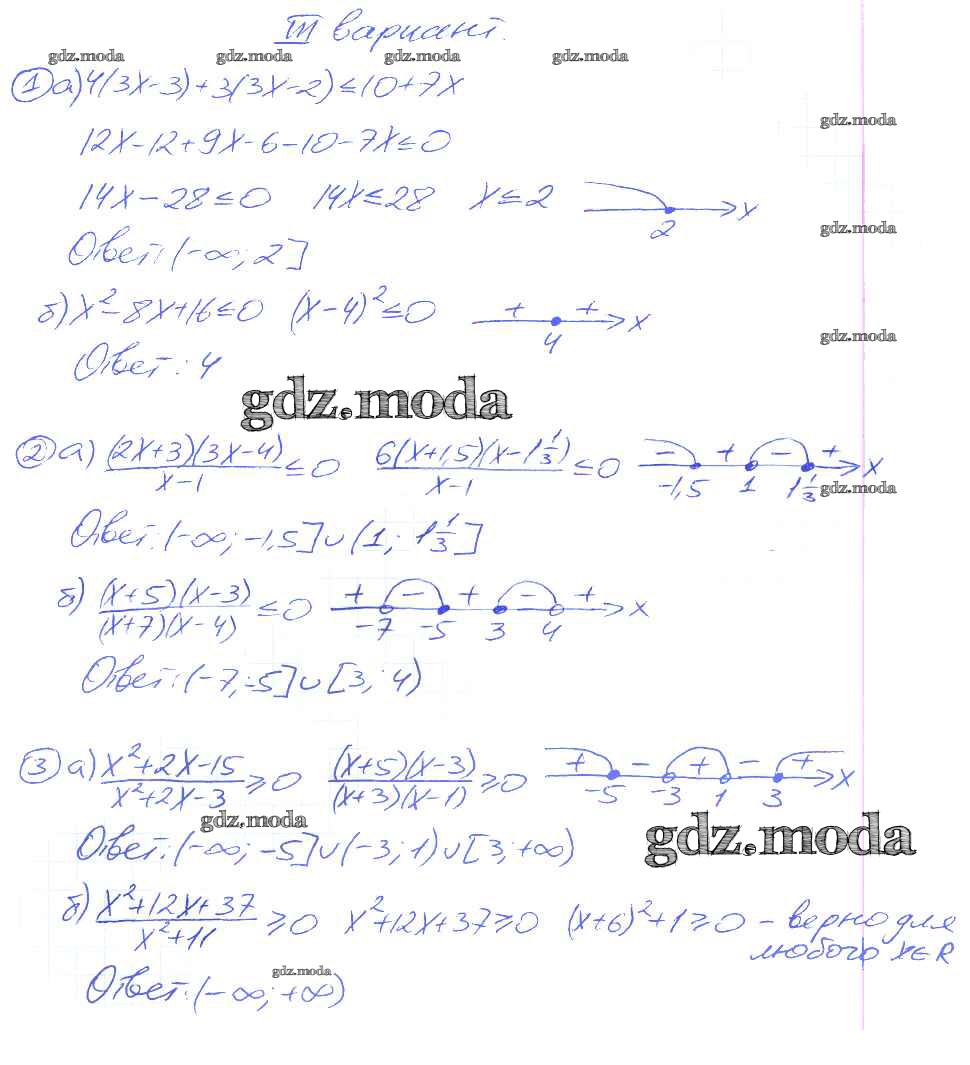 III вариант.
gdz.moda gdz.moda gdz.moda gdz.moda
① а) 4(3x-3)+3(3x-2)≤10+7x
gdz.moda
12x-12+9x-6-10-7x≤0
14x-28≤0 14x≤28 x≤2 2 x
gdz.moda
Ответ: (-∞; 2]
б) x²-8x+16≤0 (x-4)²≤0 + + 4 x
gdz.moda
Ответ: 4
gdz.moda
② а) (2x+3)(3x-4)/(x-1) ≤0 6(x+1,5)(x-1 1/3)/(x-1) ≤0 - + - + -1,5 1 1 1/3 x
gdz.moda
Ответ: (-∞; -1,5]∪(1; 1 1/3]
б) (x+5)(x-3)/((x+7)(x-4)) ≤0 + - + - + -7 -5 3 4 x
Ответ: (-7; -5]∪[3; 4)
③ а) (x²+2x-15)/(x²+2x-3) ≥0 (x+5)(x-3)/((x+3)(x-1)) ≥0 + - + - + -5 -3 1 3 x
gdz.moda gdz.moda
Ответ: (-∞; -5]∪(-3; 1)∪[3; +∞)
б) (x²+12x+37)/(x²+11) ≥0 x²+12x+37≥0 (x+6)²+1≥0 - верно для
любого x∈R
gdz.moda
Ответ: (-∞; +∞)